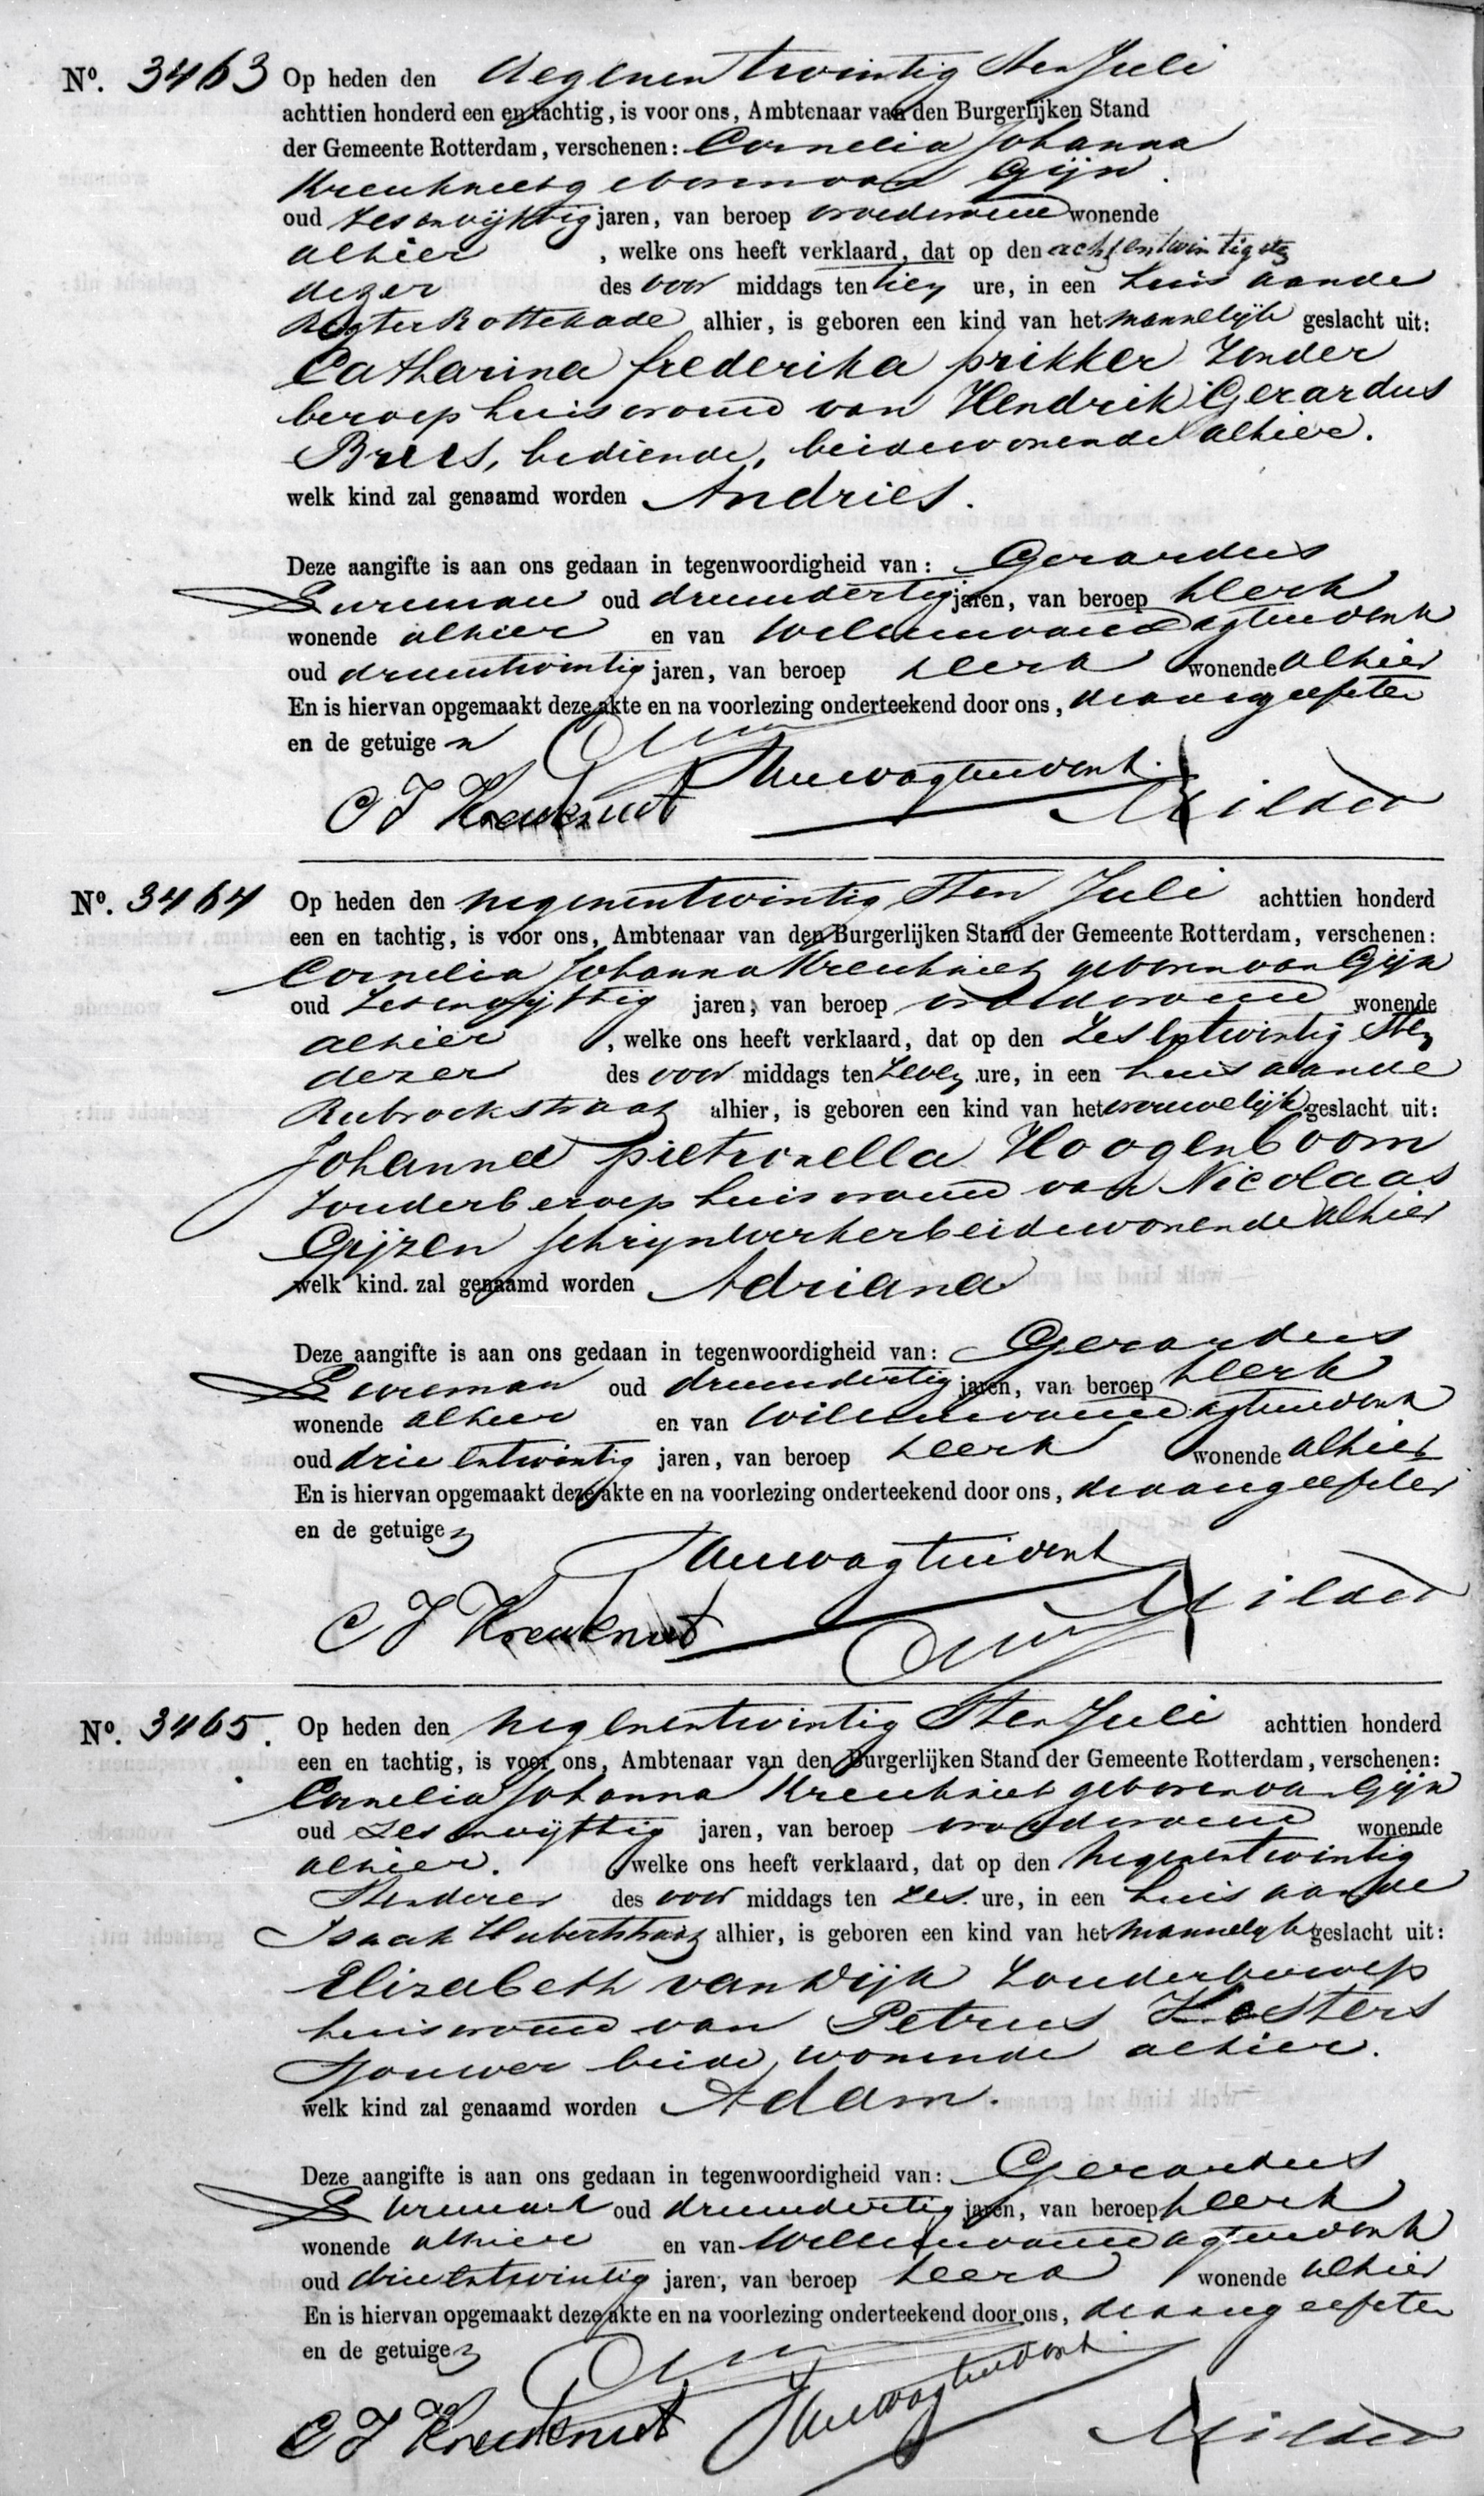 No. 3463 Op heden den Negenentwintig sten Juli
achttien honderd een en tachtig, is voor ons, Ambtenaar van den Burgerlijken Stand
der Gemeente Rotterdam, verschenen: Cornelia Johanna
Kreukniet geboren van Gijn
oud zesenvijftig jaren, van beroep vroedvrouw wonende
alhier, welke ons heeft verklaard, dat op den achtentwintigsten
dezer des voor middags ten tien ure, in een huis aan de
Regter Rottekade alhier, is geboren een kind van het mannelijk geslacht uit:
Catharina frederika prikker zonder
beroep huisvrouw van Hendrik Gerardus
Brees, bediende, beide wonende alhier.
welk kind zal genaamd worden Andries.
Deze aangifte is aan ons gedaan in tegenwoordigheid van: Gerardus
Buurman oud drieendertig jaren, van beroep klerk
wonende alhier en van Willem van
oud drieentwintig jaren, van beroep klerk wonende alhier
En is hiervan opgemaakt deze akte en na voorlezing onderteekend door ons, de aangeefster
en de getuigen
C J Kreukniet
No. 3464 Op heden den negenentwintig sten Juli achttien honderd
een en tachtig, is voor ons, Ambtenaar van den Burgerlijken Stand der Gemeente Rotterdam, verschenen:
Cornelia Johanna Kreukniet geboren van Gijn
oud zesenvijftig jaren, van beroep vroedvrouw wonende
alhier, welke ons heeft verklaard, dat op den zesentwintig sten
dezer des voor middags ten zeven ure, in een huis aan de
Rubroekstraat alhier, is geboren een kind van het vrouwelijk geslacht uit:
Johanna pietronella Hoogenboom
zonder beroep huisvrouw van Nicolaas
Gijzen schrijnwerker beide wonende alhier
welk kind zal genaamd worden Adriana
Deze aangifte is aan ons gedaan in tegenwoordigheid van: Gerardus
Buurman oud drieendertig jaren, van beroep klerk
wonende alhier en van Willem van
oud drieentwintig jaren, van beroep klerk wonende alhier
En is hiervan opgemaakt deze akte en na voorlezing onderteekend door ons, de aangeefster
en de getuigen
C J Kreukniet
No. 3465. Op heden den negenentwintig sten Juli achttien honderd
een en tachtig, is voor ons, Ambtenaar van den Burgerlijken Stand der Gemeente Rotterdam, verschenen:
Cornelia Johanna Kreukniet geboren van Gijn
oud zesenvijftig jaren, van beroep vroedvrouw wonende
alhier. welke ons heeft verklaard, dat op den negenentwintig
sten dezer des voor middags ten zes. ure, in een huis aan de
Isaak Hubertstraat alhier, is geboren een kind van het mannelijk geslacht uit:
Elizabeth van Dijk zonder beroep
huisvrouw van Petrus Kosters
sjouwer beide wonende alhier.
welk kind zal genaamd worden Adam.
Deze aangifte is aan ons gedaan in tegenwoordigheid van: Gerardus
Buurman oud drieendertig jaren, van beroep klerk
wonende alhier en van Willem van
oud drieentwintig jaren, van beroep klerk wonende alhier
En is hiervan opgemaakt deze akte en na voorlezing onderteekend door ons, de aangeefster
en de getuigen
C J Kreukniet